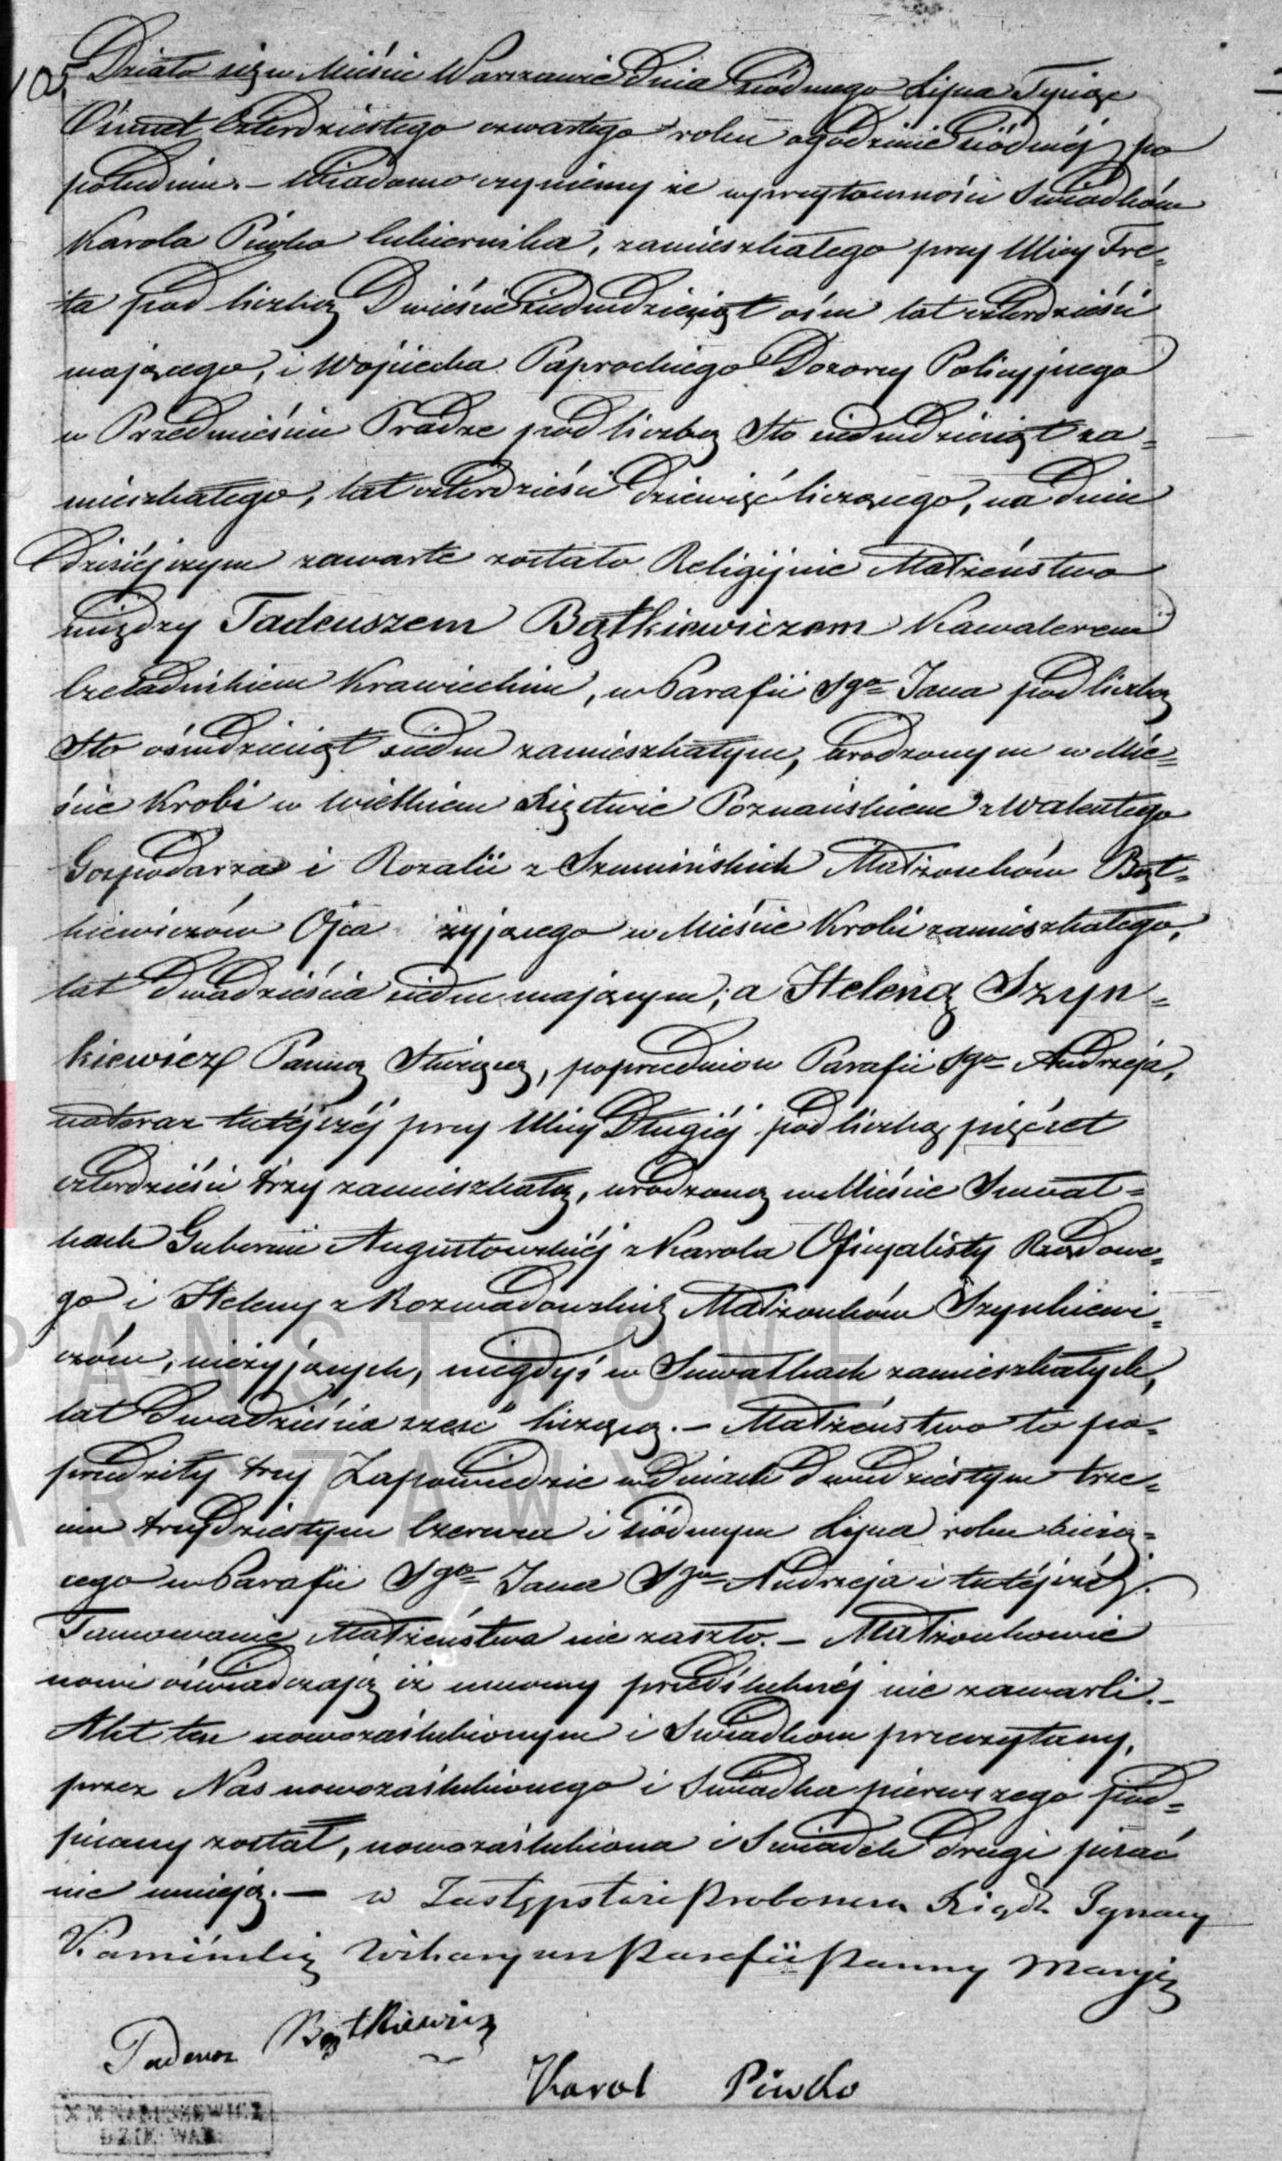 Działo się w Mieście Warszawie Dnia siódmego Lipca Tysiąc
Ośmset Czterdziestego czwartego roku o godzinie siódméj po
południu. – Wiadomo czyniemy że w przytomności Świadków
Karola Piwko Cukiernika, zamieszkałego przy Ulicy Fre=
ta pod liczbą Dwieście siedmdziesiąt ośm lat czterdzieści
mającego, i Wojciecha Paprockiego Dozorcy Policyjnego
w Przedmieściu Pradze pod liczbą Sto siedmdziesiąt za=
mieszkałego, lat czterdzieści dziewięć liczącego, na dniu
dzisiéjszym zawarte zostało Religijnie Małżeństwo
między Tadeuszem Bątkiewiczem Kawalerem
Czeladnikiem Krawieckim, w Parafii Sgo Jana pod liczbą
Sto ośmdziesiąt siedm zamieszkałym, urodzonym w Mie=
ście Krobi w Wielkiem Księstwie Poznańskiem z Walentego
Gospodarza i Rozalii z Szumińskich Małżonków Bąt=
kiewiczów Ojca żyjącego w Mieście Krobi zamieszkałego,
lat Dwadzieścia siedm mającym; a Heleną Szyn=
kiewicz Panną Służącą, poprzednio w Parafii Sgo Andrzeja,
na teraz tutéjszéj przy Ulicy Długiéj pod liczbą pięćset
czterdzieści trzy zamieszkałą, urodzoną w Mieście Suwał=
kach Gubernii Augustowskiéj z Karola Oficyalisty Rządowe=
go i Heleny z Rozwadowskich Małżonków Szynkiewi=
czów, nieżyjących, niegdyś w Suwałkach zamieszkałych,
lat Dwadzieścia sześć liczącą. – Małżeństwo to po=
przedziły trzy Zapowiedzie w dniach dwudziestym trze=
cim trzydziestym Czerwca i siódmym Lipca roku bieżą=
cego w Parafii Sgo Jana Sgo Andrzeja i tutéjszéj.
Tamowanie Małżeństwa nie zaszło. – Małżonkowie
nowi oświadczają iż umowy przedślubnéj nie zawarli. –
Akt ten nowozaślubionym i Świadkom przeczytany,
przez Nas nowozaślubionego i Świadka pierwszego pod=
pisany został, nowozaślubiona i Świadek drugi pisać
nie umieją. – w Zastępstwie Proboszcza Xiądz Ignacy
Kamiński Wikaryusz Parafii Panny Maryi
Tadeusz Bątkiewicz
Karol Piwko
PAŃSTWOWE
WARSZAWY